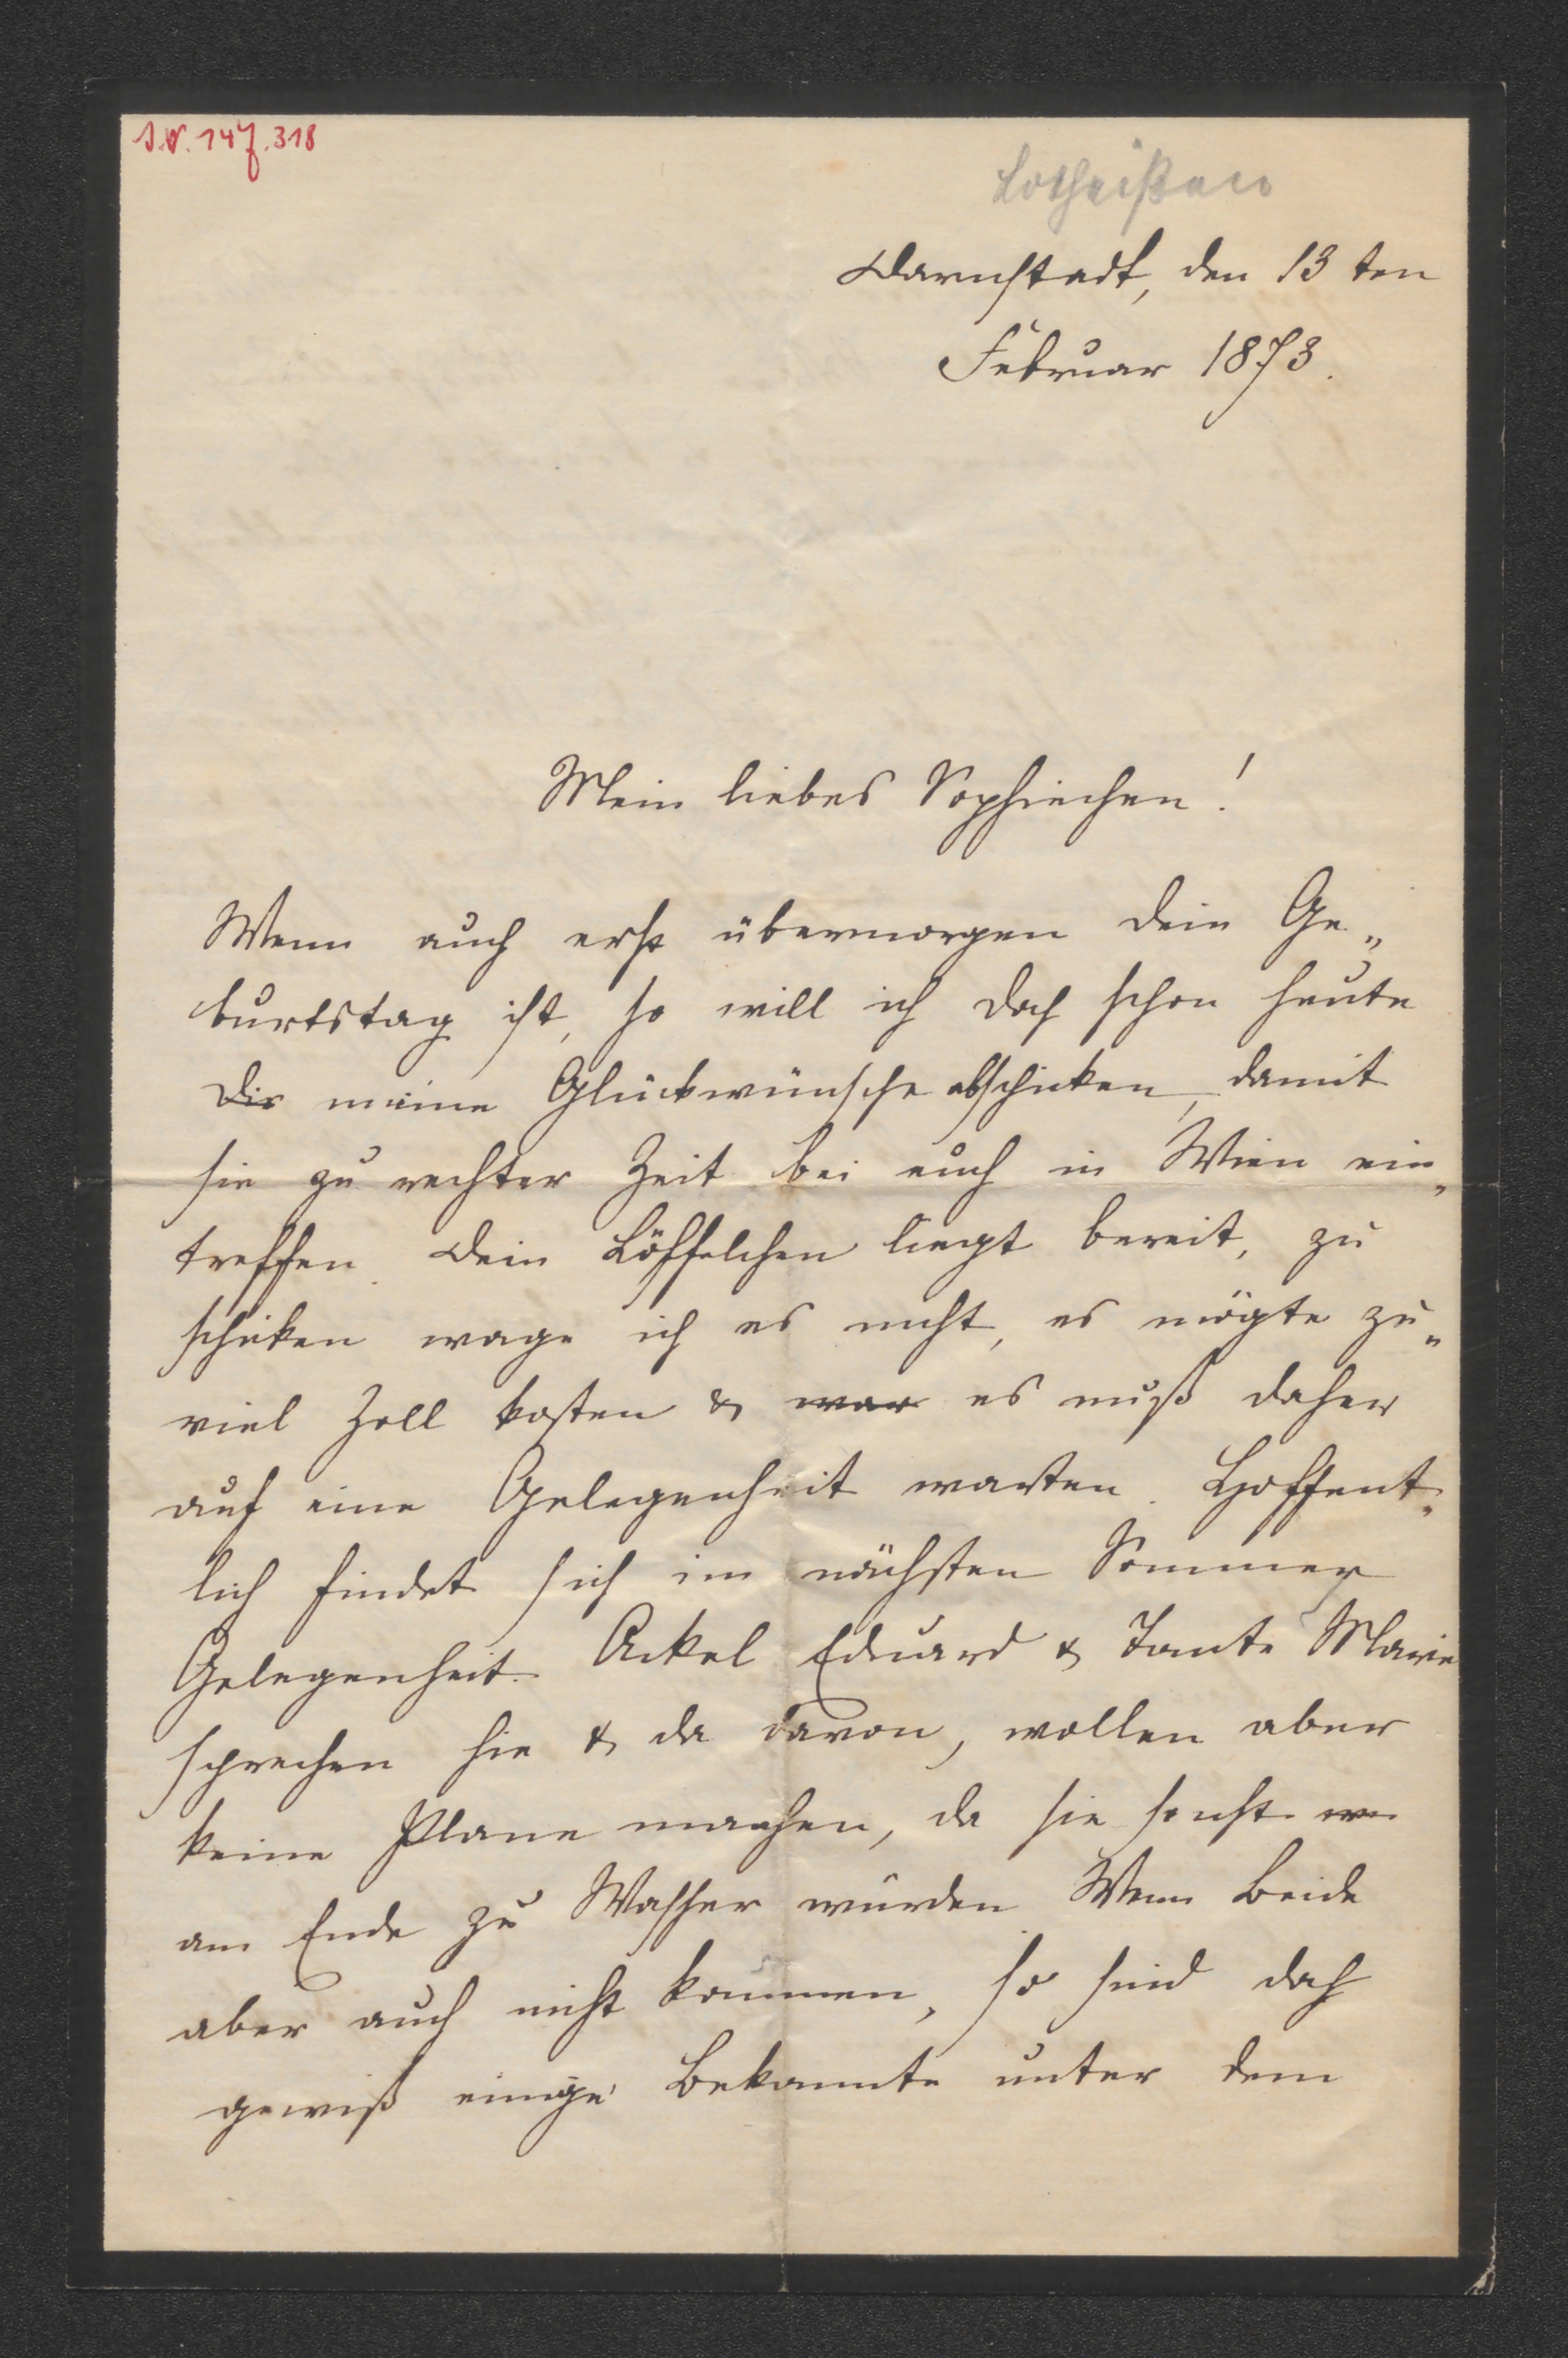 I.N. 147.318
Lotheißen
Darmstadt, den 13 ten
Februar 1873.
Mein liebes Sophiechen!
Wenn auch erst übermorgen dein Ge„
burtstag ist, so will ich doch schon heute
Dir meine Glückwünsche abschicken, damit
sie zu rechter Zeit bei euch in Wien ein„
treffen. Dein Löffelchen liegt bereit, zu
schicken wage ich es nicht, es mögte zu„
viel Zoll kosten & war es muß daher
auf eine Gelegenheit warten. Hoffent„
lich findet sich im nächsten Sommer
Gelegenheit. Onkel Eduard & Tante Marie
sprechen hie & da davon, wollen aber
keine Plane machen, da sie sonst
am Ende zu Wasser würden Wenn Beide
aber auch nicht kommen, so sind doch
gewiß einige Bekannte unter dem